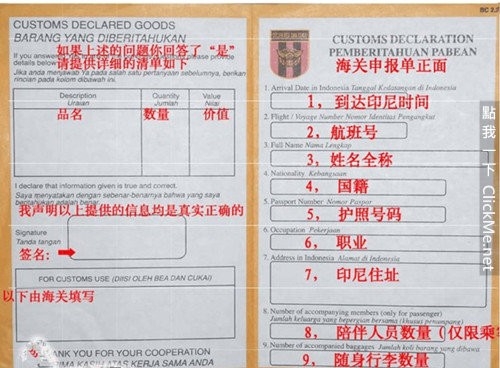 BC 2.2
CUSTOMS DECLARED GOODS
BARANG YANG DIBERITAHUKAN
如果上述的问题你回答了“是”
请提供详细的清单如下
If you answered
please provide
details below
Jika anda menjawab Ya pada salah satu pertanyaan sebelumnya, berikan
rincian pada kolom dibawah ini.
Description
Uraian
Quantity
Jumlah
Value
Nilai
品名
数量
价值
I declare that information given is true and correct.
Saya menyatakan dengan sebenar-benarnya bahwa yang saya
beritahukan adalah benar.
我声明以上提供的信息均是真实正确的
Signature
Tanda tangan
签名:
FOR CUSTOMS USE (DIISI OLEH BEA DAN CUKAI)
以下由海关填写
THANK YOU FOR YOUR COOPERATION
TERIMA KASIH ATAS KERJA SAMA ANDA
CUSTOMS DECLARATION
PEMBERITAHUAN PABEAN
海关申报单正面
1. Arrival Date in Indonesia Tanggal Kedatangan di Indonesia
1, 到达印尼时间
2. Flight / Voyage Number Nomor Identitas Pengangkut
2, 航班号
3. Full Name Nama Lengkap
3, 姓名全称
4. Nationality Kebangsaan
4, 国籍
5. Passport Number Nomor Paspor
5, 护照号码
6. Occupation Pekerjaan
6, 职业
7. Address in Indonesia Alamat di Indonesia
7, 印尼住址
8. Number of accompanying members (only for passenger)
Jumlah keluarga yang bepergian bersama (khusus penumpang)
8, 陪伴人员数量(仅限乘
9. Number of accompanied baggages Jumlah koli barang yang dibawa
9, 随身行李数量
點我一下 ClickMe.net